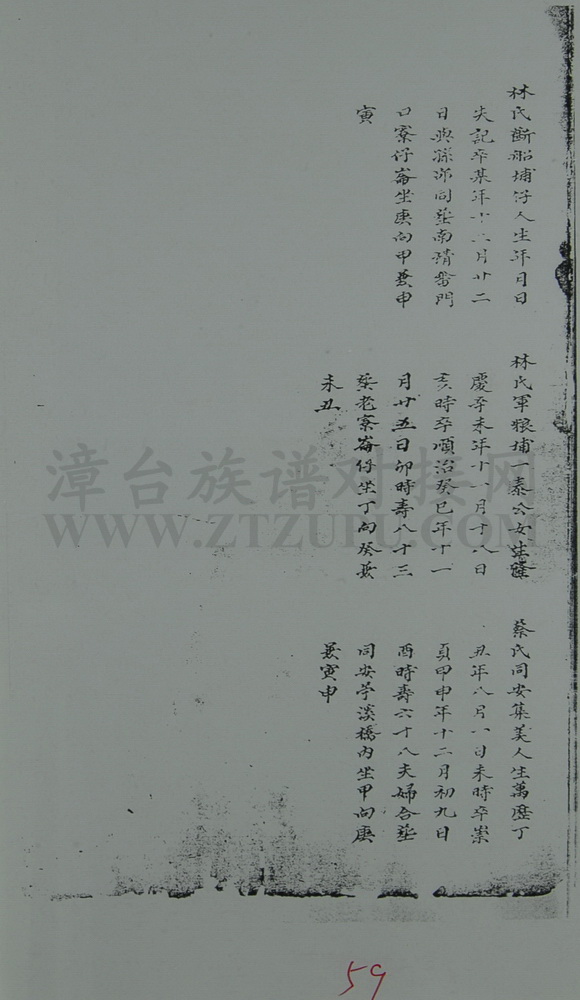 林氏斷船埔仔人生年月日
失記卒某年十二月廿二
日與孫郎同塟南靖畨門
口寮仔崙坐庚向甲兼申
寅
林氏軍粮埔一泰公女生隆
慶辛未年十一月十八日
亥時卒順治癸巳年十一
月廿五日卯時壽八十三
塟老寮崙仔坐丁向癸兼
未丑
蔡氏同安集美人生萬曆丁
丑年八月八日未時卒崇
貞甲申年十二月初九日
酉時壽六十八夫婦合塟
同安苧溪橋內坐甲向庚
兼寅申
漳台族谱对接网
WWW.ZTZUPU.COM
59